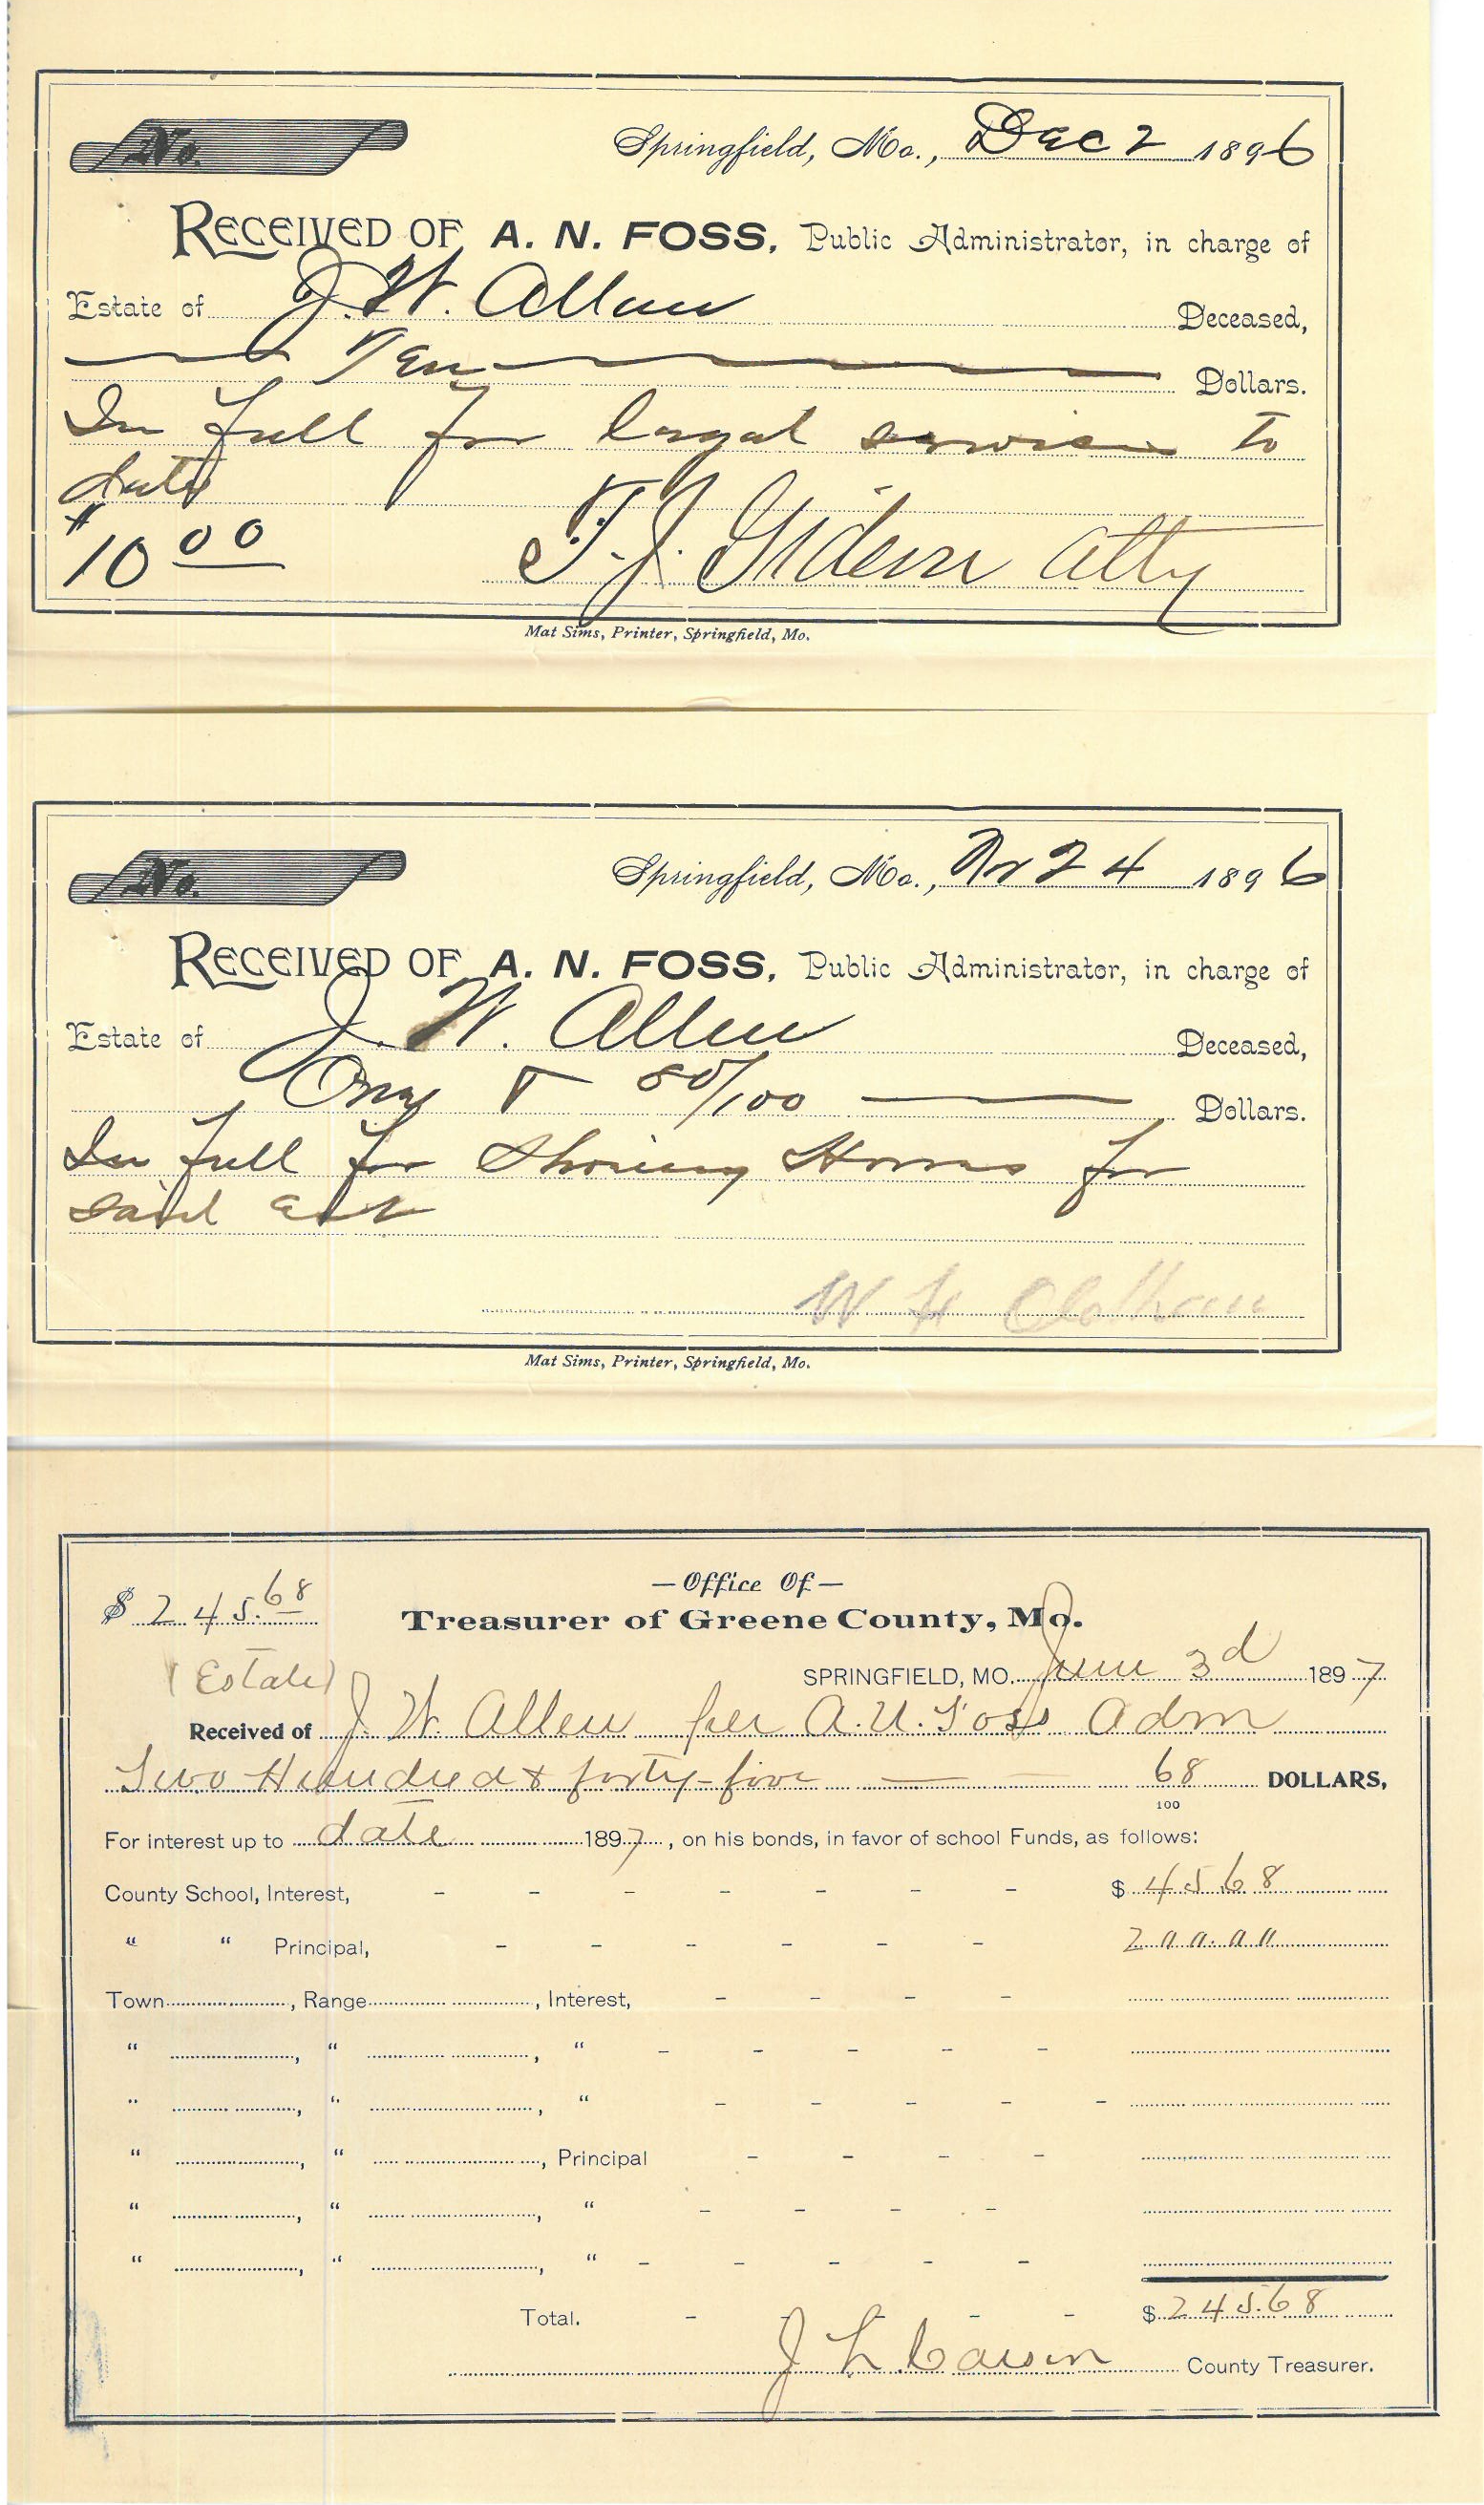 No.
Springfield, Mo., Dec 2 1896
RECEIVED OF A. N. FOSS, Public Administrator, in charge of
Estate of J. W. Allen Deceased,
Ten Dollars.
In full for legal services to
date
$10 00
T. J. Gideon Atty
Mat Sims, Printer, Springfield, Mo.
No.
Springfield, Mo., Nov 24 1896
RECEIVED OF A. N. FOSS, Public Administrator, in charge of
Estate of J. W. Allen Deceased,
One & 50/100 Dollars.
In full for Shoeing Horses for
said Est
W
Mat Sims, Printer, Springfield, Mo.
— Office Of —
$ 245.68 Treasurer of Greene County, Mo.
(Estate) SPRINGFIELD, MO. June 3d 1897
Received of J. W. Allen per A. N. Foss Adm
Two Hundred & forty-five — — 68 DOLLARS,
100
For interest up to date 1897, on his bonds, in favor of school Funds, as follows:
County School, Interest, - - - - - - - $ 45.68
" " Principal, - - - - - - 200.00
Town , Range , Interest, - - - -
" , " , " - - - - -
" , " , " - - - - -
" , " , Principal - - - -
" , " , " - - - -
" , " , " - - - - -
Total. - - - - - $ 245.68
J. L. County Treasurer.